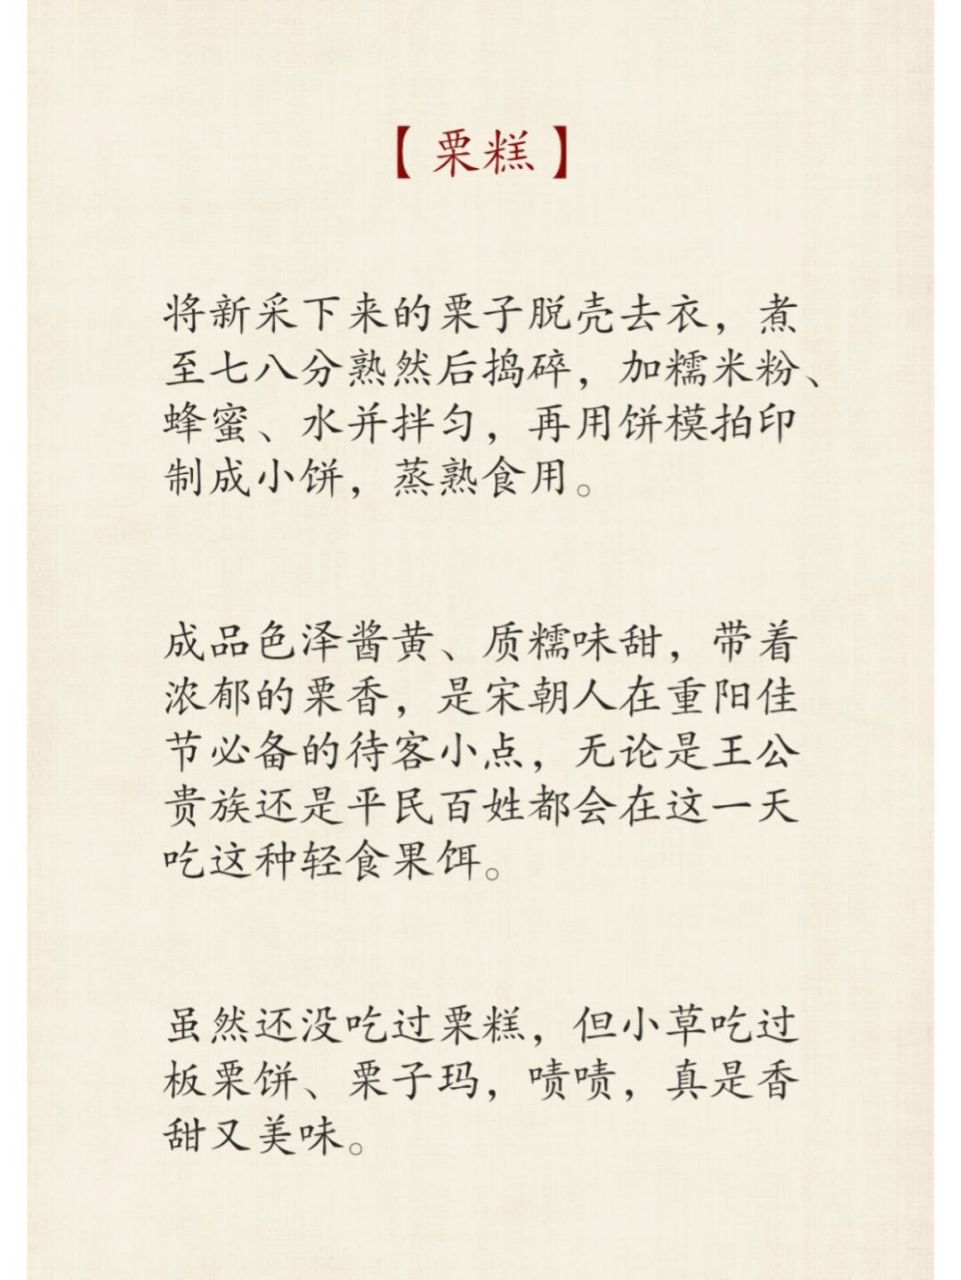 【栗糕】
将新采下来的栗子脱壳去衣，煮
至七八分熟然后捣碎，加糯米粉、
蜂蜜、水并拌匀，再用饼模拍印
制成小饼，蒸熟食用。
成品色泽酱黄、质糯味甜，带着
浓郁的栗香，是宋朝人在重阳佳
节必备的待客小点，无论是王公
贵族还是平民百姓都会在这一天
吃这种轻食果饵。
虽然还没吃过栗糕，但小草吃过
板栗饼、栗子玛，啧啧，真是香
甜又美味。